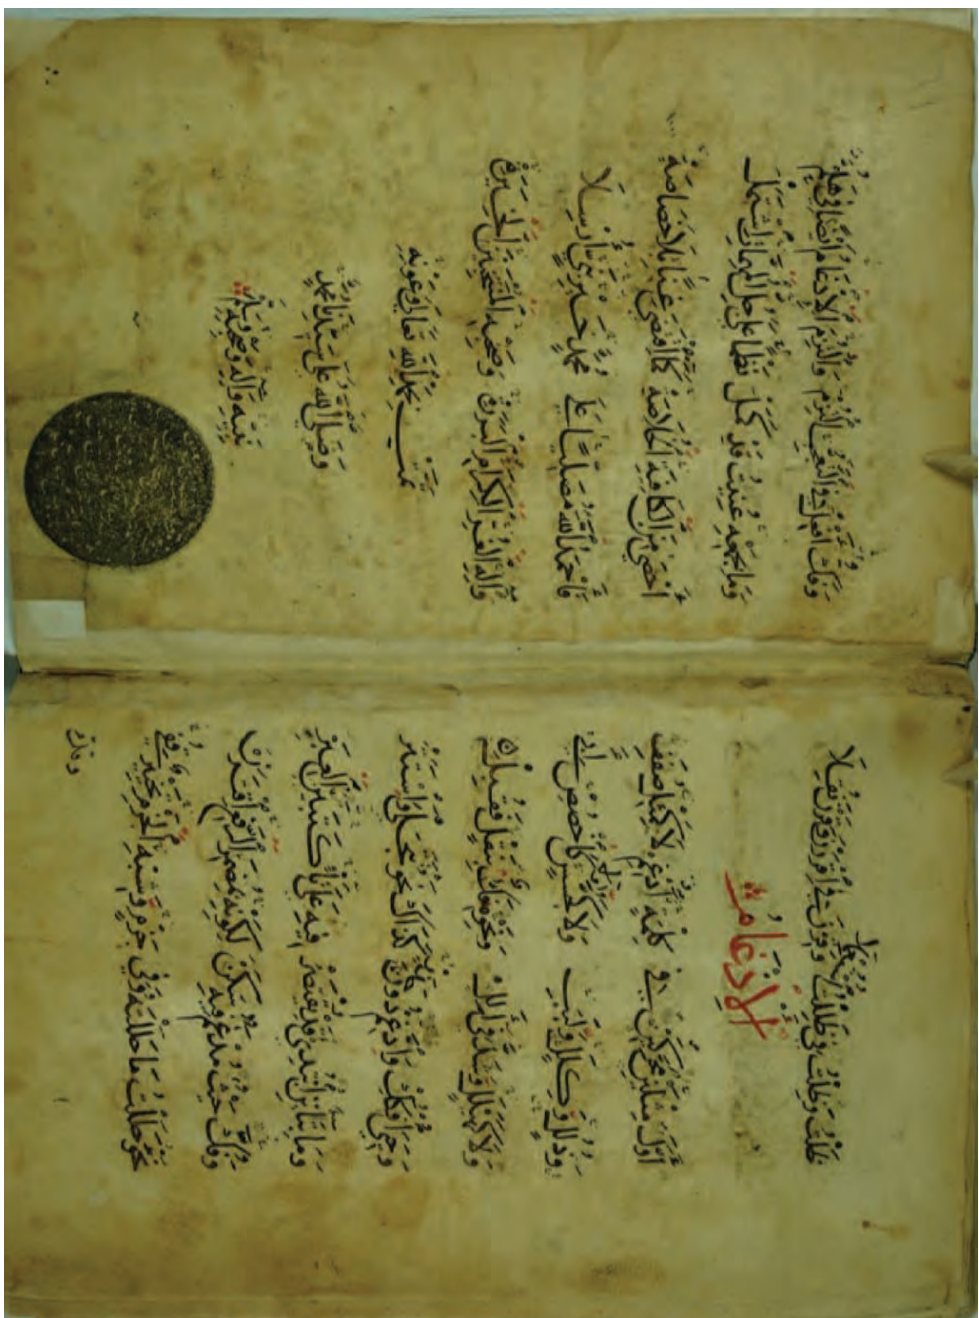 ظَلْتُ وَظِلْتُ فِي ظَلِلْتُ اسْتُعْمِلَا وَقِرْنَ فِي اقْرِرْنَ وَقَرْنَ نُقِلَا
الإدْغَامُ
أَوَّلَ مِثْلَيْنِ مُحَرَّكَيْنِ فِي كِلْمَةٍ ادْغِمْ لَا كَمِثْلِ صُفَفِ
وَذُلُلٍ وَكِلَلٍ وَلَبَبِ وَلَا كَجُسَّسٍ وَلَا كَاخْصُصَ ابِي
وَلَا كَهَيْلَلٍ وَشَذَّ فِي أَلِلْ وَنَحْوِهِ فَكٌّ بِنَقْلٍ فَقُبِلْ
وَحَيِيَ افْكُكْ وَادَّغِمْ دُونَ حَذَرْ كَذَاكَ نَحْوُ تَتَجَلَّى وَاسْتَتَرْ
وَمَا بِتَاءَيْنِ ابْتُدِي قَدْ يُقْتَصَرْ فِيهِ عَلَى تَا كَتَبَيَّنُ الْعِبَرْ
وَفُكَّ حَيْثُ مُدْغَمٌ فِيهِ سَكَنْ لِكَوْنِهِ بِمُضْمَرِ الرَّفْعِ اقْتَرَنْ
نَحْوُ حَلَلْتُ مَا حَلَلْتَهُ وَفِي جَزْمٍ وَشِبْهِ الْجَزْمِ تَخْيِيرٌ قُفِي
وفك
وَفَكُّ أَفْعِلْ فِي التَّعَجُّبِ الْتُزِمْ وَالْتُزِمَ الْإِدْغَامُ أَيْضًا فِي هَلُمْ
وَمَا بِجَمْعِهِ عُنِيتُ قَدْ كَمَلْ نَظْمًا عَلَى جُلِّ الْمُهِمَّاتِ اشْتَمَلْ
أَحْصَى مِنَ الْكَافِيَةِ الْخُلَاصَهْ كَمَا اقْتَضَى غِنًى بِلَا خَصَاصَهْ
فَأَحْمَدُ اللَّهَ مُصَلِّيًا عَلَى مُحَمَّدٍ خَيْرِ نَبِيٍّ أُرْسِلَا
وَآلِهِ الْغُرِّ الْكِرَامِ الْبَرَرَهْ وَصَحْبِهِ الْمُنْتَخَبِينَ الْخِيَرَهْ
تَمَّتْ بِحَمْدِ اللَّهِ تَعَالَى وَعَوْنِهِ
وَصَلَّى اللَّهُ عَلَى سَيِّدِنَا مُحَمَّدٍ
نَبِيِّهِ وَآلِهِ وَصَحْبِهِ وَسَلَّمَ